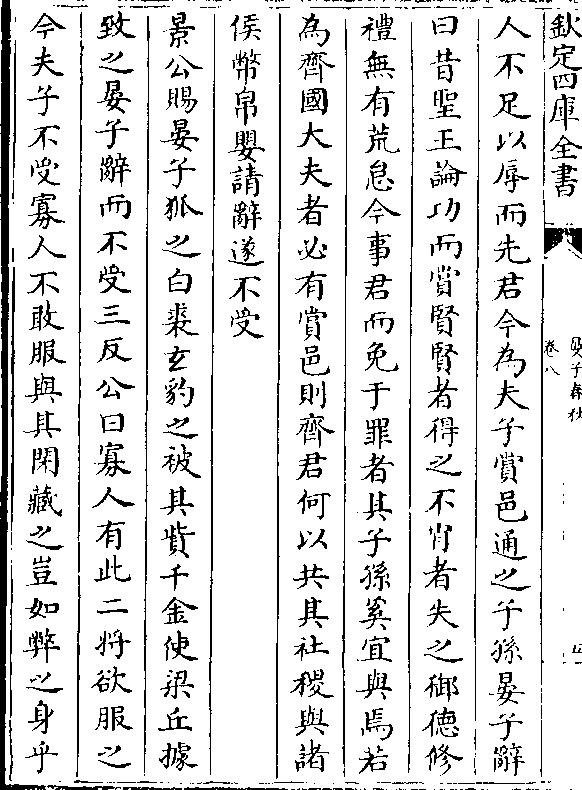 欽定四庫全書
晏子春秋
卷八
五
人不足以辱而先君今為夫子賞邑通之子孫晏子辭
曰昔聖王論功而賞賢賢者得之不肖者失之御德修
禮無有荒怠今事君而免于罪者其子孫奚宜與焉若
為齊國大夫者必有賞邑則齊君何以共其社稷與諸
侯幣帛嬰請辭遂不受
景公賜晏子狐之白裘玄豹之被其貲千金使梁丘據
致之晏子辭而不受三反公曰寡人有此二將欲服之
今夫子不受寡人不敢服與其閑藏之豈如弊之身乎